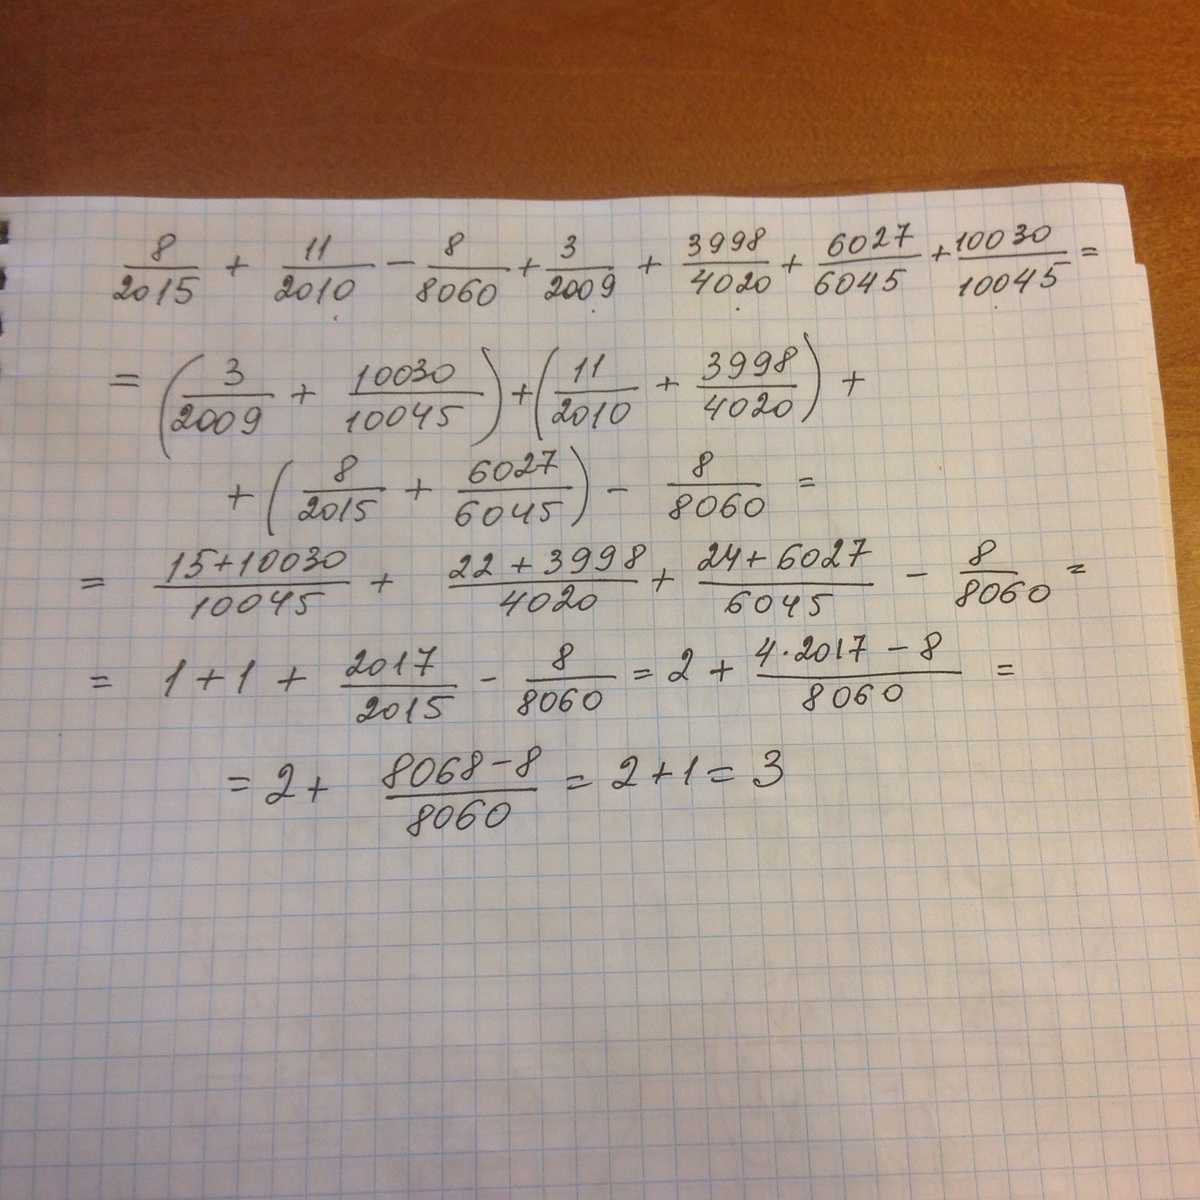 8/2015 + 11/2010 − 8/8060 + 3/2009 + 3998/4020 + 6027/6045 + 10030/10045 =
= (3/2009 + 10030/10045) + (11/2010 + 3998/4020) +
+ (8/2015 + 6027/6045) − 8/8060 =
= (15+10030)/10045 + (22+3998)/4020 + (24+6027)/6045 − 8/8060 =
= 1+1 + 2017/2015 − 8/8060 = 2 + (4·2017−8)/8060 =
= 2 + (8068−8)/8060 = 2+1 = 3